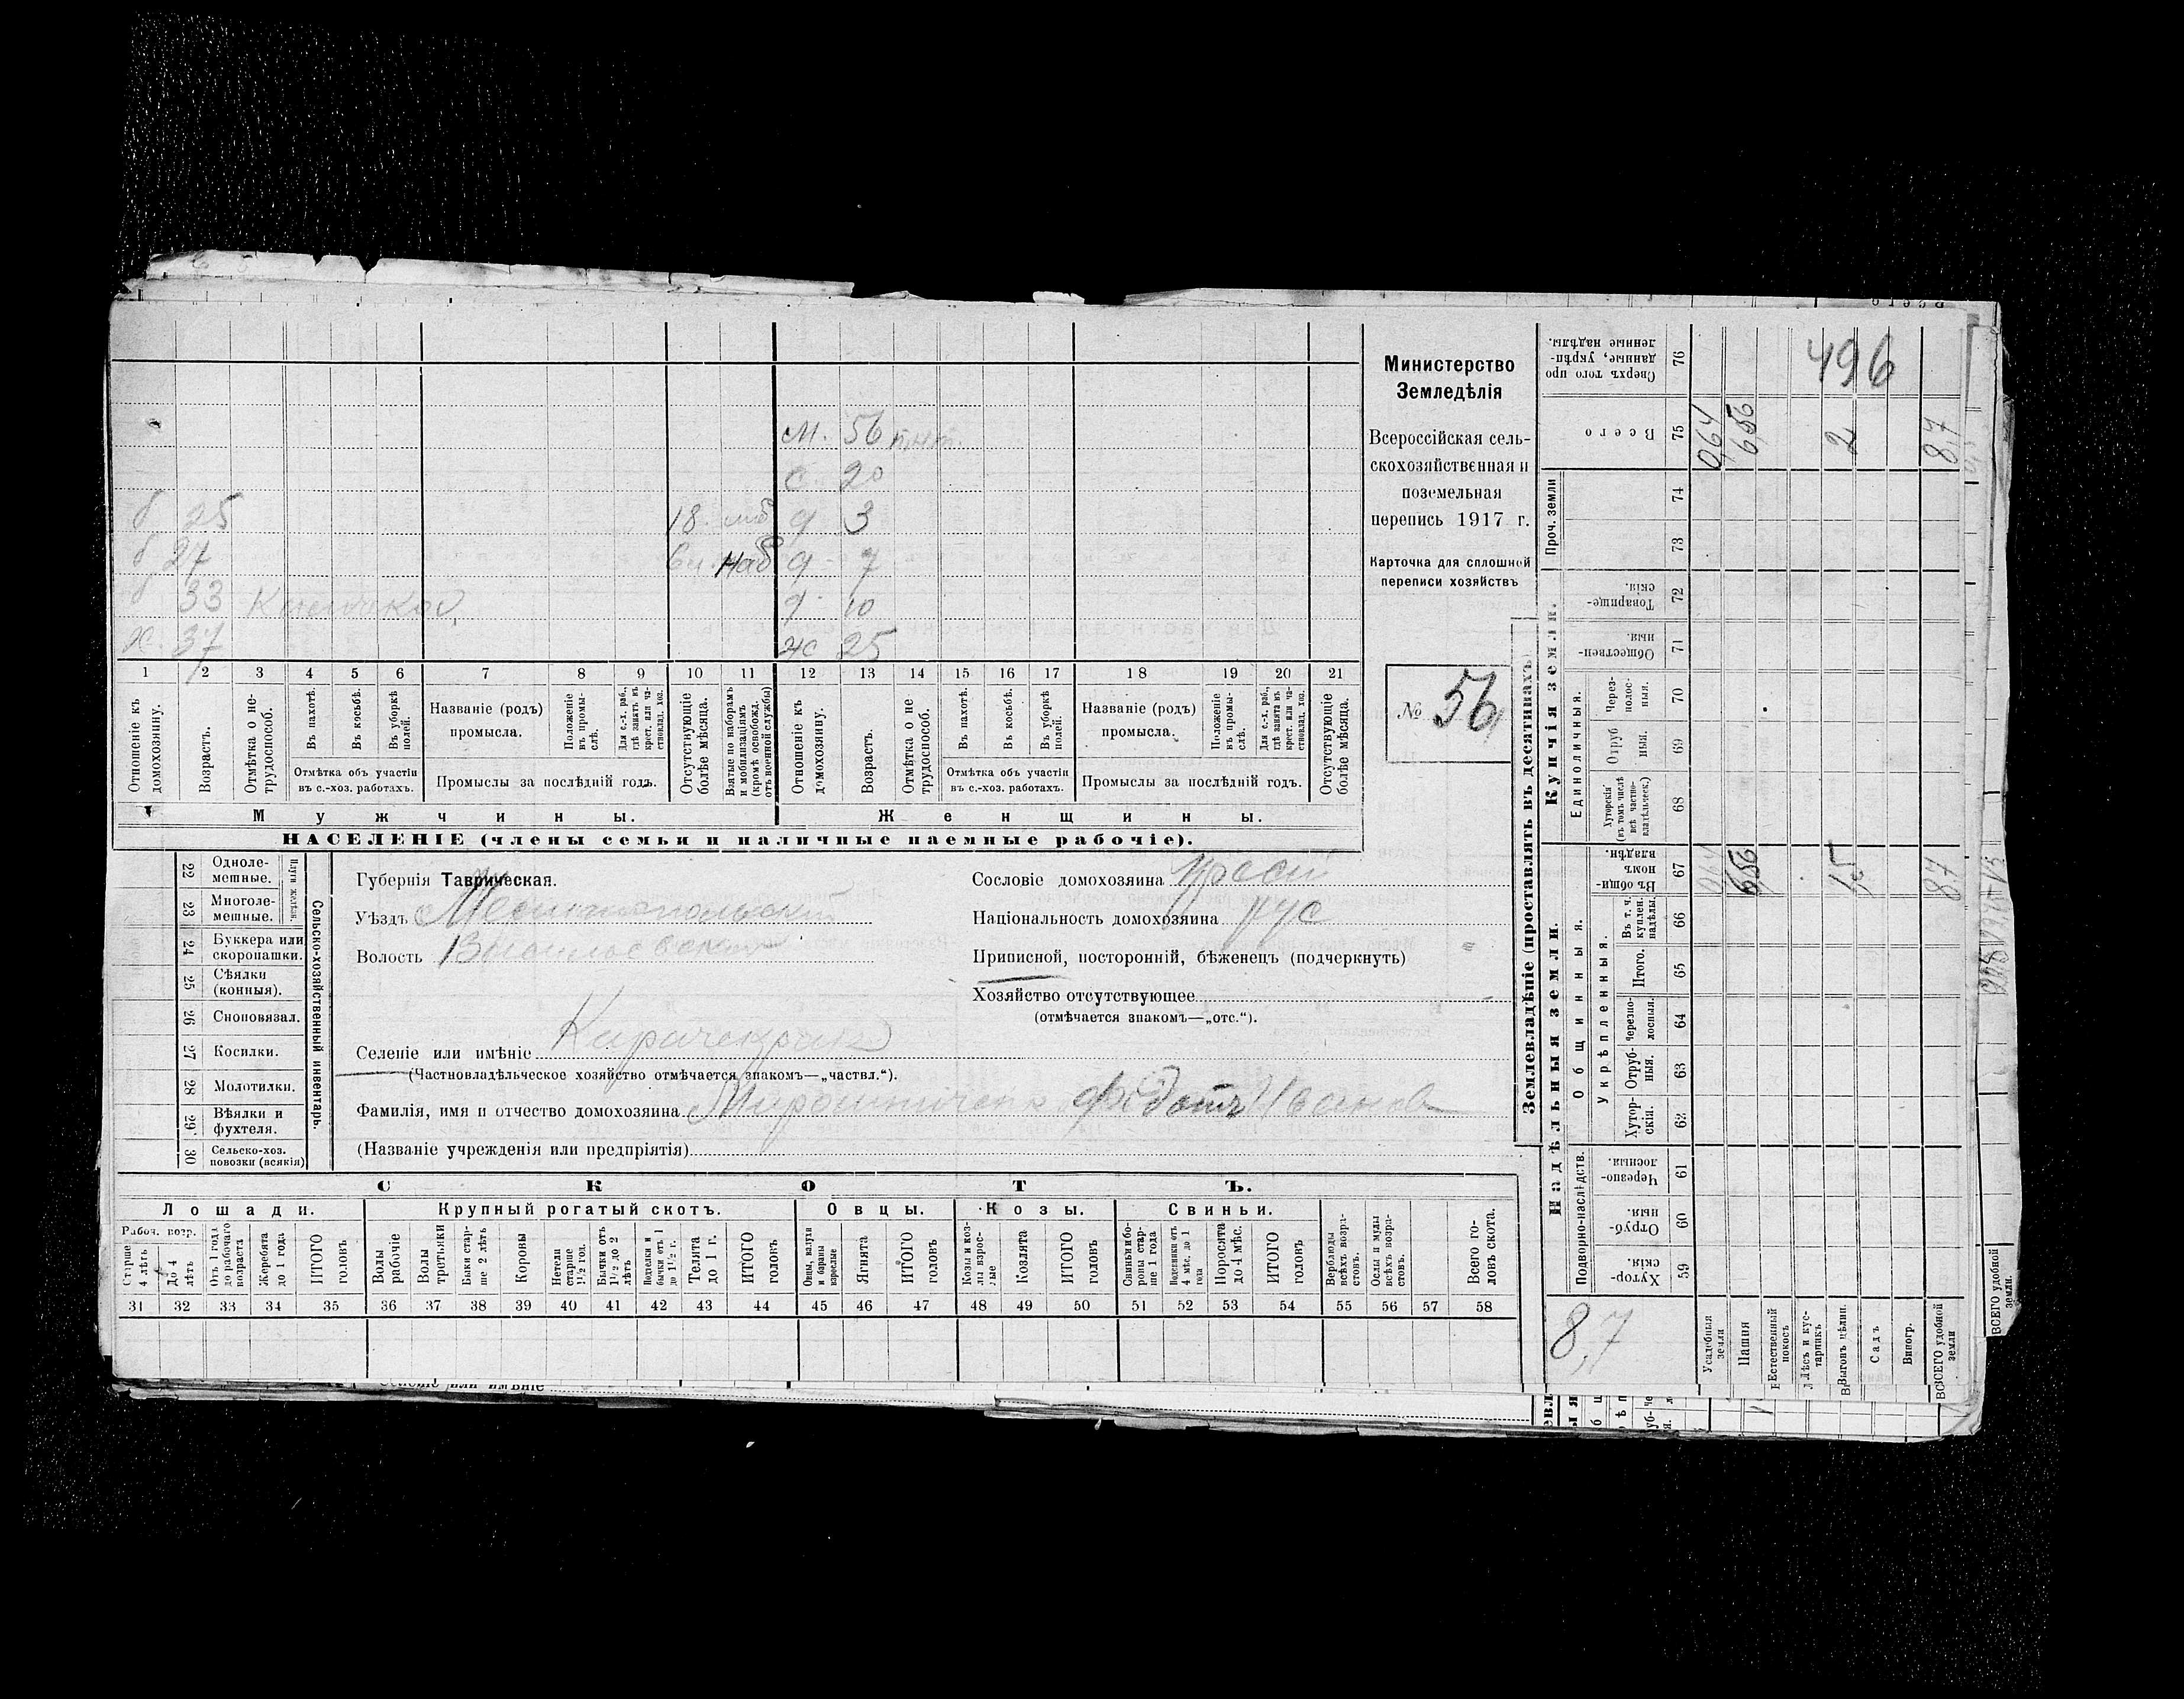 496
м. 56
с 20
б 25 18. моб д 3
б 27 наб д 7
б 33 д 10
х. 37 ж 25
1 2 3 4 5 6 7 8 9 10 11 12 13 14 15 16 17 18 19 20 21
Отношеніе къ домохозяину.
Возрастъ.
Отмѣтка о не-трудоспособ.
Въ пахотѣ.
Въ косьбѣ.
Въ уборкѣ полей.
Отмѣтка объ участіи въ с.-хоз. работахъ.
Названіе (родъ) промысла.
Положеніе въ промы-слѣ.
Для с.-х. раб., гдѣ занятъ въ крест. или ча-стновлад. хоз.
Промыслы за послѣдній годъ.
Отсутствующіе болѣе мѣсяца.
Взятые по наборамъ и мобилизаціямъ (кромѣ освобожд. отъ военной службы)
Отношеніе къ домохозяину.
Возрастъ.
Отмѣтка о не трудоспособ.
Въ пахотѣ.
Въ косьбѣ.
Въ уборкѣ полей.
Отмѣтка объ участіи въ с.-хоз. работахъ.
Названіе (родъ) промысла.
Положеніе въ промы-слѣ.
Для с.-х. раб., гдѣ занята въ крест. или ча-стновлад. хоз.
Промыслы за послѣдній годъ.
Отсутствующіе болѣе мѣсяца.
Мужчины.
Женщины.
НАСЕЛЕНІЕ (члены семьи и наличные наемные рабочіе).
Министерство
Земледѣлія
Всероссійская сель-
скохозяйственная и
поземельная
перепись 1917 г.
Карточка для сплошной
переписи хозяйствъ
№ 56
Сельско-хозяйственный инвентарь.
Плуги желѣзн.
22 Одноле-мешные.
23 Многоле-мешные.
24 Буккера или скоропашки.
25 Сѣялки (конныя).
26 Сноповязал.
27 Косилки.
28 Молотилки.
29 Вѣялки и фухтеля.
30 Сельско-хоз. повозки (всякія)
Губернія Таврическая.
Уѣздъ Мелитопольскій
Волость
Сословіе домохозяина крест
Національность домохозяина рус
Приписной, посторонній, бѣженецъ (подчеркнуть)
Хозяйство отсутствующее
(отмѣчается знакомъ—„отс.“).
Селеніе или имѣніе Карачекрак
(Частновладѣльческое хозяйство отмѣчается знакомъ—„частвл.“).
Фамилія, имя и отчество домохозяина Мирошниченко Федотъ Иванов
(Названіе учрежденія или предпріятія)
СКОТЪ.
Лошади. Крупный рогатый скотъ. Овцы. Козы. Свиньи.
Рабоч. возр.
Старше 4 лѣтъ
До 4 лѣтъ
Отъ 1 года до рабочаго возраста
Жеребята до 1 года
ИТОГО головъ
Волы рабочіе
Волы третьяки
Быки стар-ше 2 лѣтъ
Коровы
Нетели старше 1½ год.
Бычки отъ 1½ до 2 лѣтъ
Подтелки и бычки отъ 1 до 1½ г.
Телята до 1 г.
ИТОГО головъ
Овцы, валухи и бараны взрослые
Ягнята
ИТОГО головъ
Козы и коз-лы взрос-лые
Козлята
ИТОГО головъ
Свиньи и бо-ровы стар-ше 1 года
Подсвинки отъ 4 мѣс. до 1 года
Поросята до 4 мѣс.
ИТОГО головъ
Верблюды всѣхъ возра-стовъ.
Ослы и мулы всѣхъ возра-стовъ.
Всего го-ловъ скота.
31 32 33 34 35 36 37 38 39 40 41 42 43 44 45 46 47 48 49 50 51 52 53 54 55 56 57 58
Землевладѣніе (проставлять въ десятинахъ)
Надѣльныя земли.
Купчія земли.
Подворно-наслѣдств.
Общинныя.
Укрѣпленныя.
Единоличныя.
Проч. земли
Хутор-скія. 59
Отруб-ныя 60
Черезпо-лосныя. 61
Хутор-скія. 62
Отруб-ныя. 63
Черезпо-лосныя. 64
Итого. 65
Въ т. ч. куплен. надѣлы. 66
Въ общи-номъ владѣн. 67
Хуторскія (въ томъ числѣ всѣ частно-владѣльческ.) 68
Отруб ныя. 69
Через-полос-ныя. 70
Обществен-ныя. 71
Товарище-скія. 72
73
74
Всего 75
Сверхъ того про данные, укрѣп-ленные надѣлы. 76
0,64 6,56 2 8,7
0,64 6,56 1,5 8,7
8,7
Усадебныя земли
Пашня
Естественный покосъ
Лѣсъ и кус-тарникъ
Выгонъ цѣлин.
Садъ
Виногр.
ВСЕГО удобной земли
ВСЕГО удобной земли.
Селеніе или имѣніе